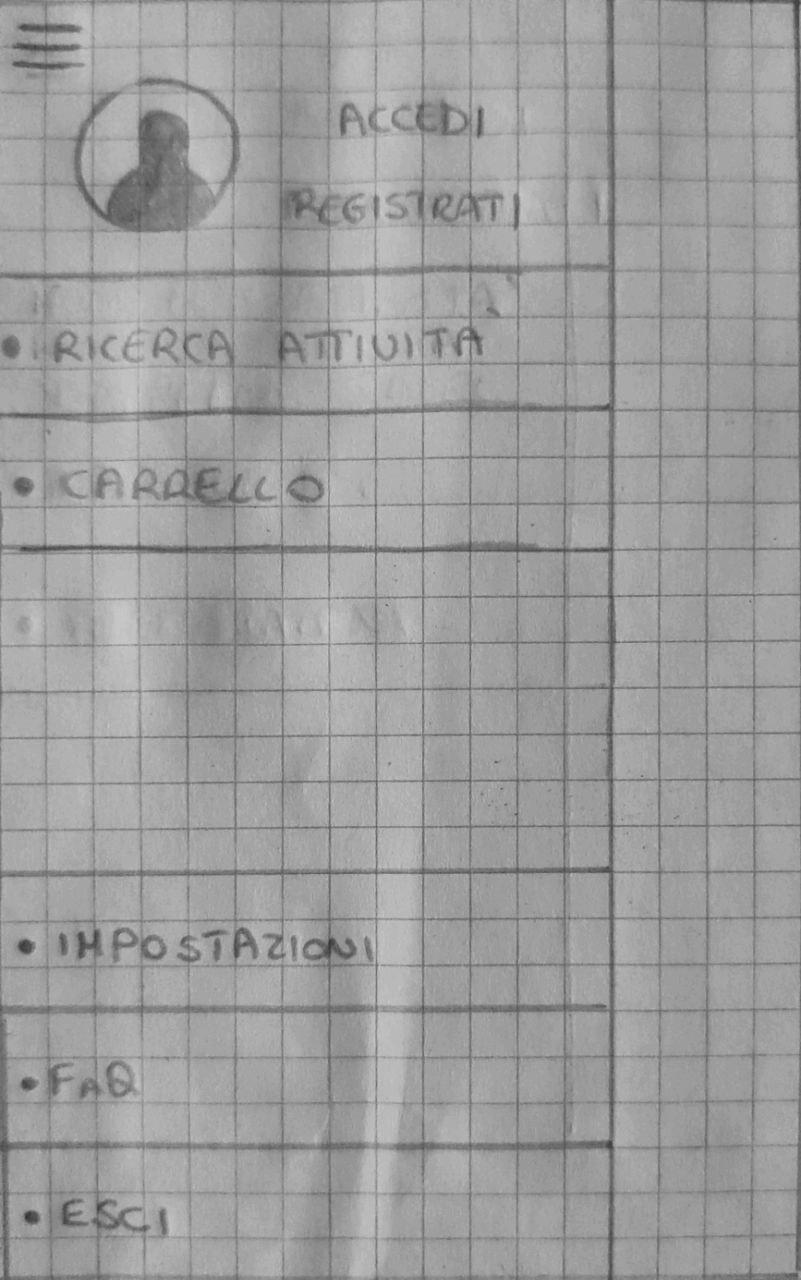 ACCEDI
REGISTRATI
• RICERCA ATTIVITÀ
• CARRELLO
• IMPOSTAZIONI
• FAQ
• ESCI